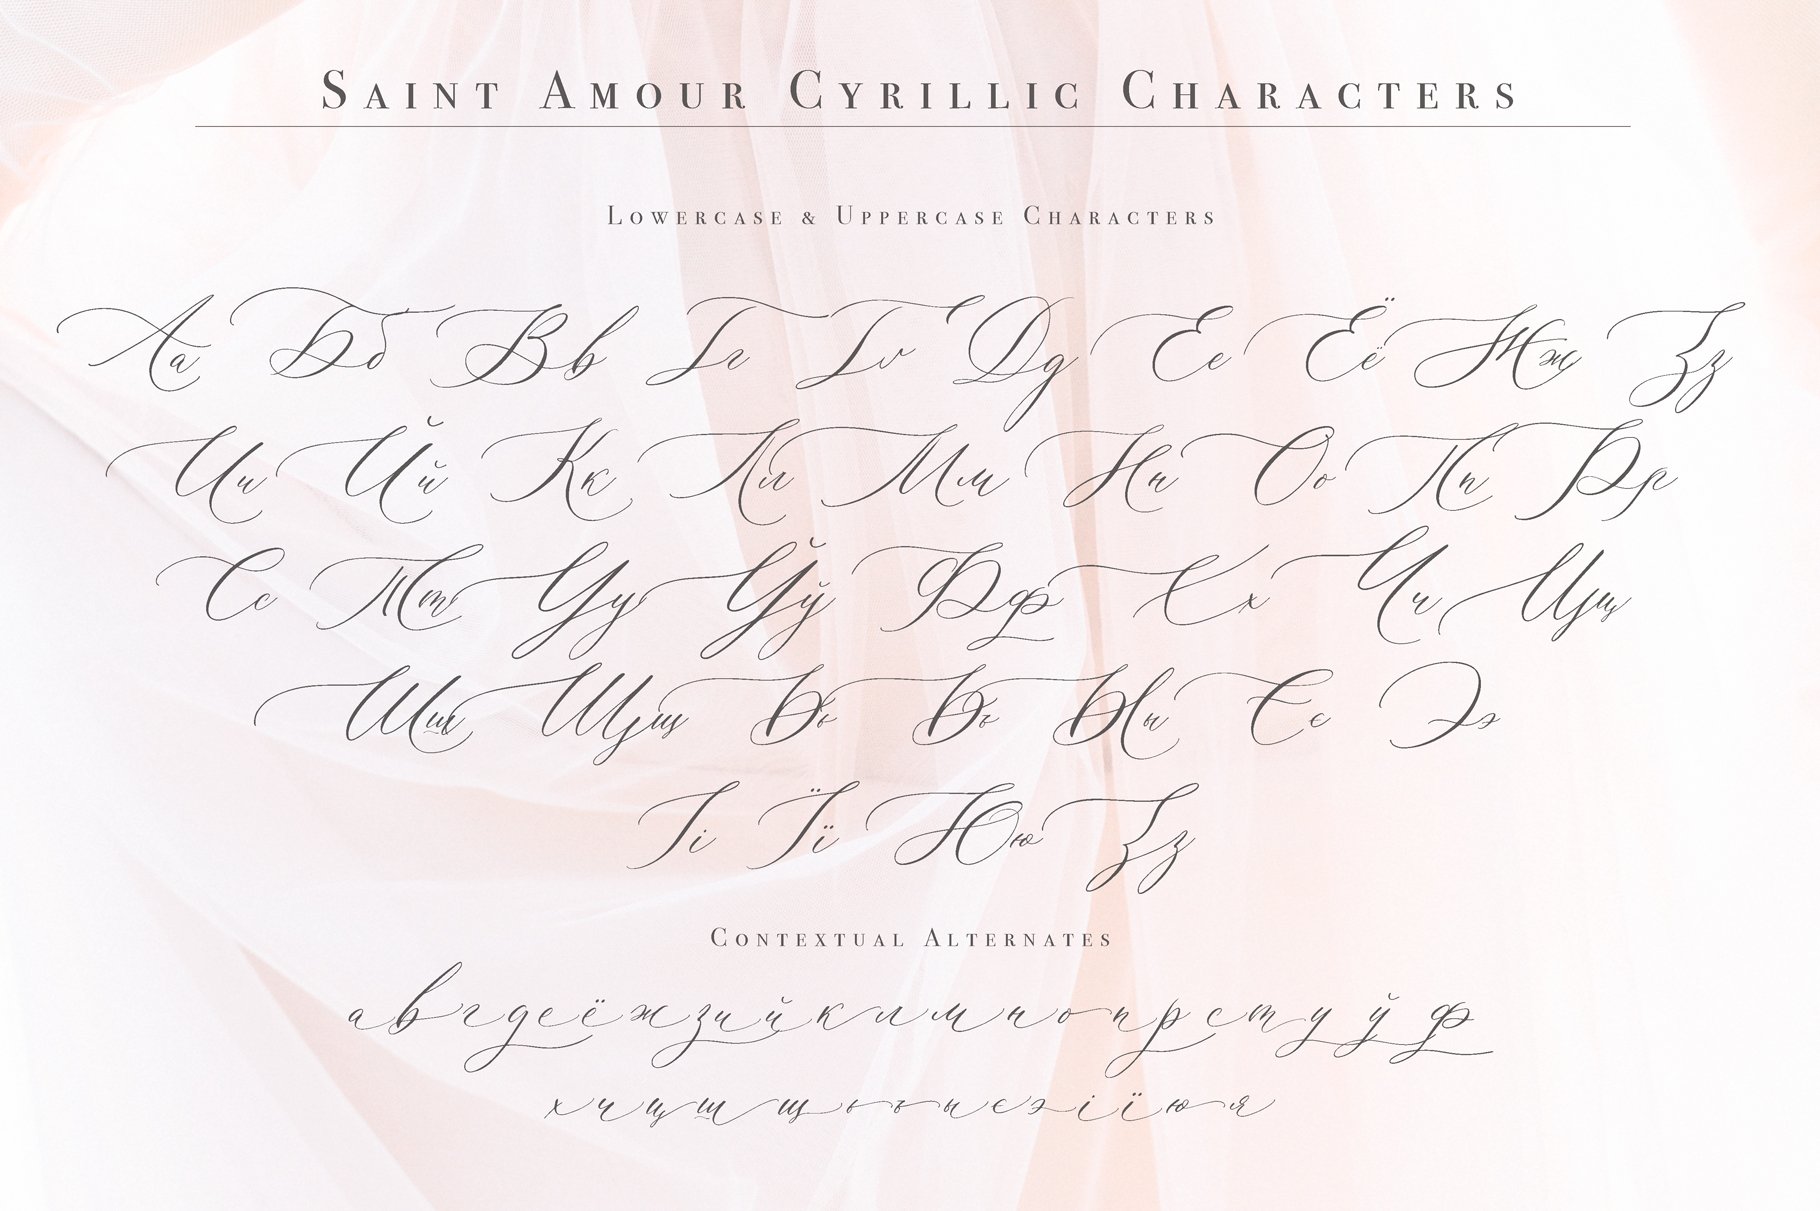 Saint Amour Cyrillic Characters
Lowercase & Uppercase Characters
Аа Бб Вв Гг Ґґ Дд Ее Ёё Жж Зз
Ии Йй Кк Лл Мм Нн Оо Пп Рр
Сс Тт Уу Ўў Фф Хх Чч Цц
Шш Щщ Ьь Ъъ Ыы Єє Ээ
Іі Її Юю Зз
Contextual Alternates
а в г д е ё ж з и й к л м н о п р с т у ў ф
х ч ц ш щ ь ъ ы є э і ї ю я